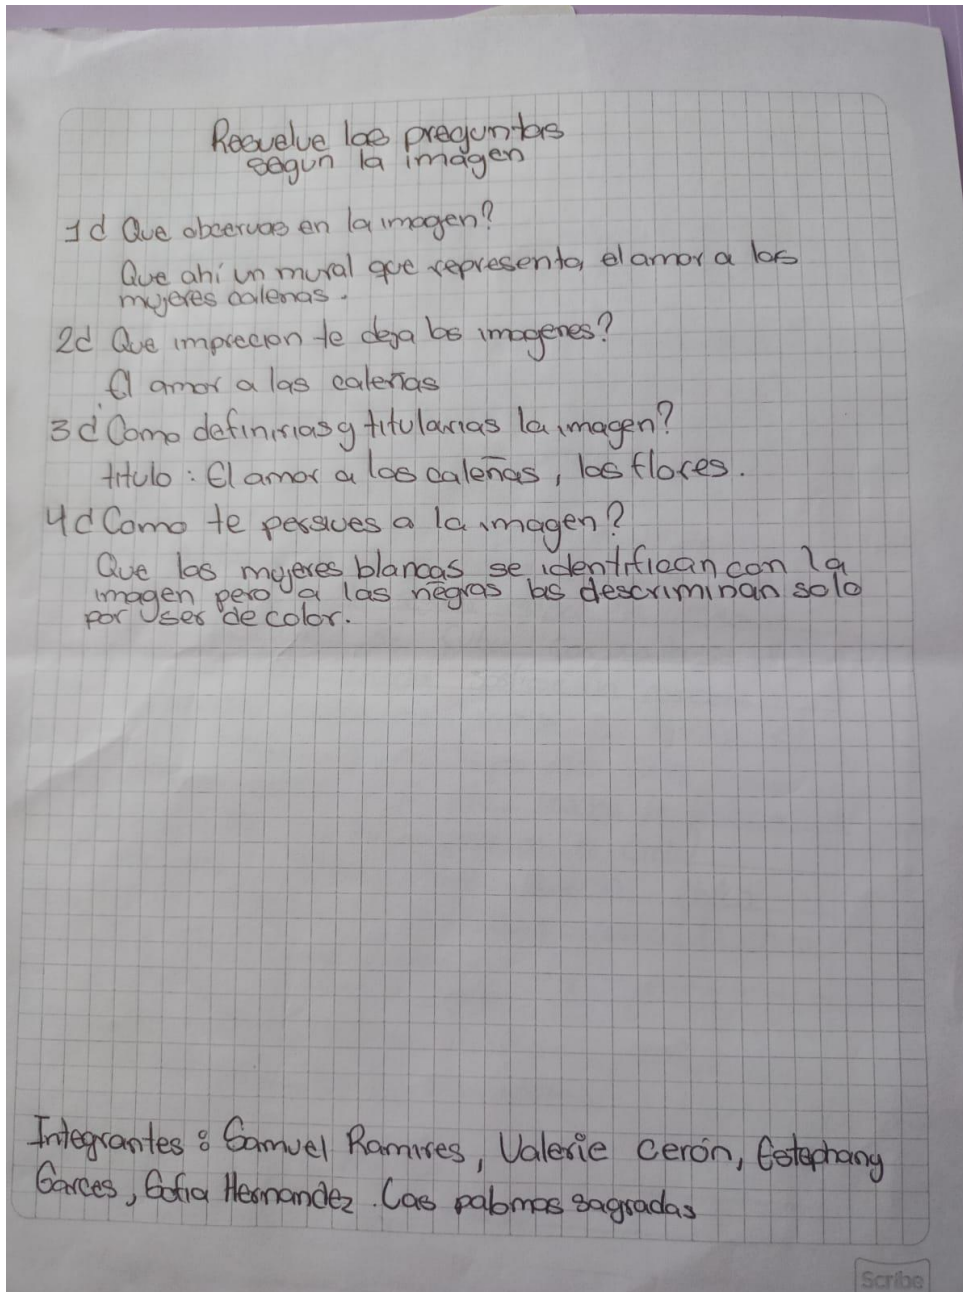 Resuelve las preguntas
segun la imagen
1d Que observas en la imagen?
Que ahí un mural que representa, el amor a las
mujeres caleñas.
2d Que imprecion te deja las imagenes?
El amor a las caleñas
3d Como definirias y titularias la imagen?
titulo : El amor a las caleñas, las flores.
4d Como te persives a la imagen?
Que las mujeres blancas se identifican con la
imagen pero a las negras las descriminan solo
por ser de color.
Integrantes : Samuel Ramires, Valerie Cerón, Estephany
Garces, Sofia Hernandez . Las palomas sagradas
Scribe